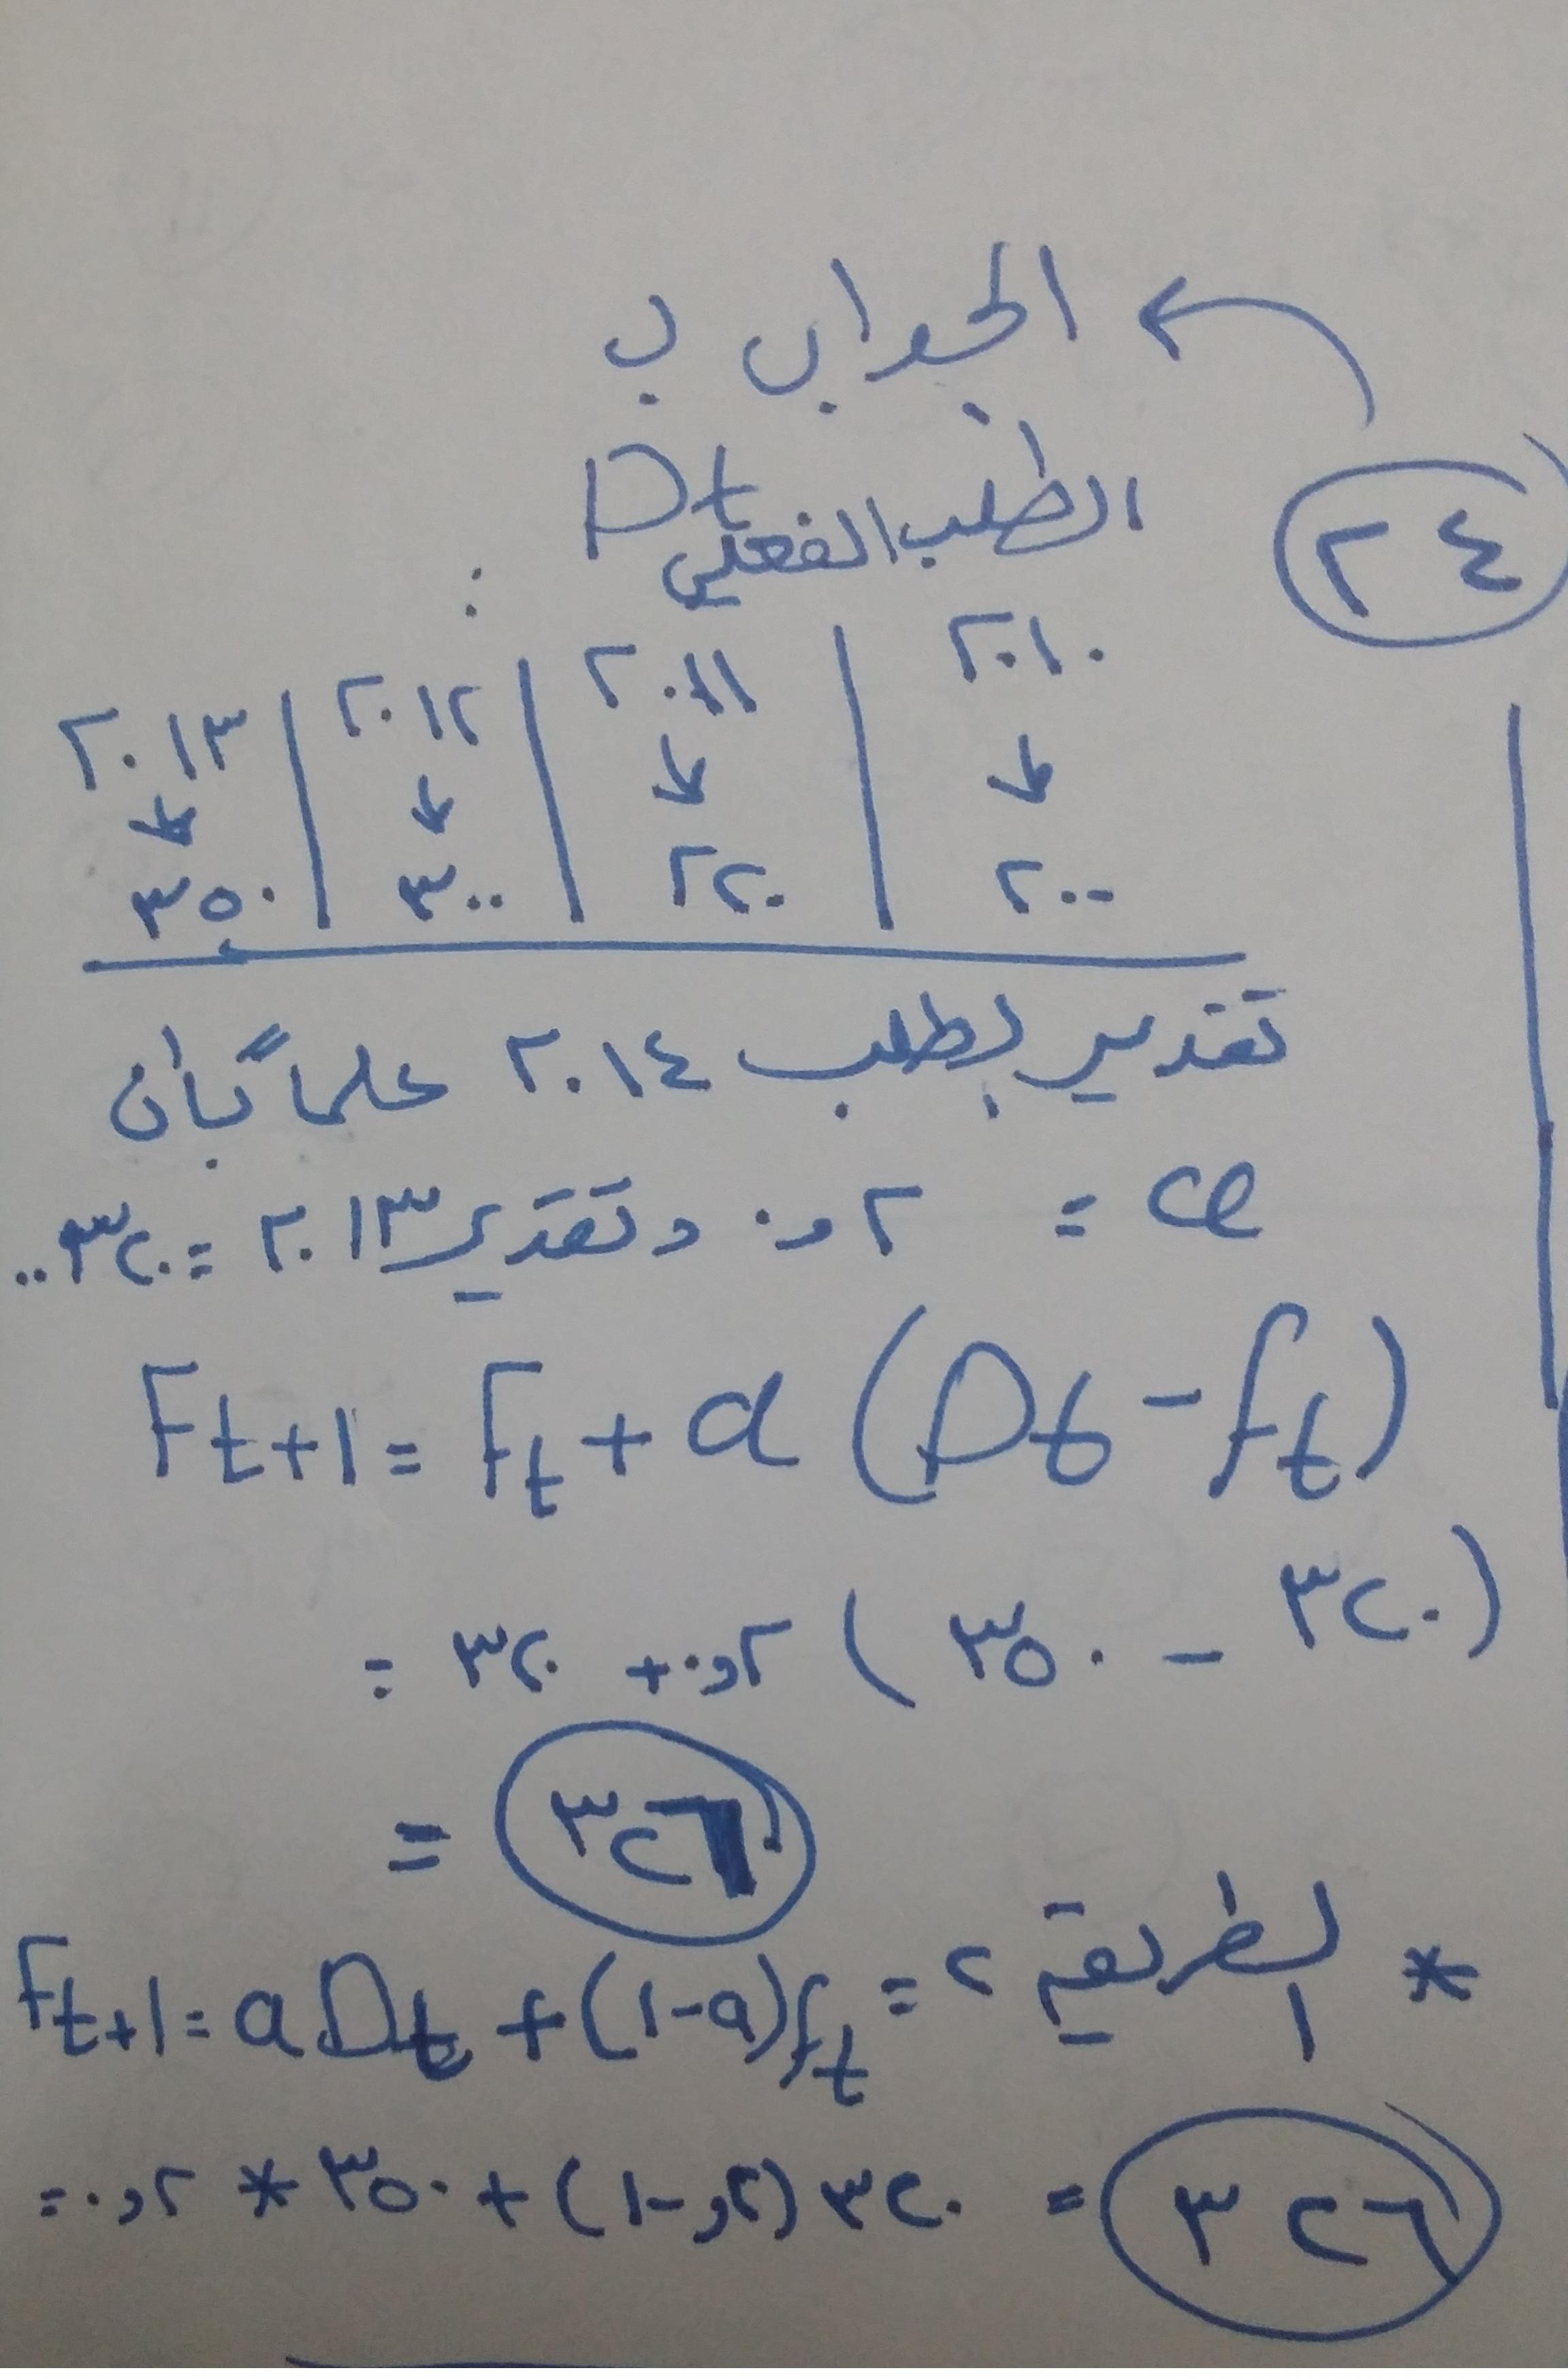 ٢٤
الجواب ب
الطلب الفعلي Dt :
٢٠١٠ | ٢٠١١ | ٢٠١٢ | ٢٠١٣
٢٠٠ | ٢٢٠ | ٣٠٠ | ٣٥٠
تقدير لطلب ٢٠١٤ علماً بأن
a = ٠,٢ وتقدير ٢٠١٣ = ٣٢٠..
Ft+1 = Ft + a (Dt - ft)
= ٣٢٠ + ٠,٢ (٣٥٠ - ٣٢٠)
= ٣٢٦
* الطريقة ٢ = Ft+1 = a Dt + (1-a)ft
= ٠,٢ * ٣٥٠ + (١-,٢) ٣٢٠ = ٣٢٦